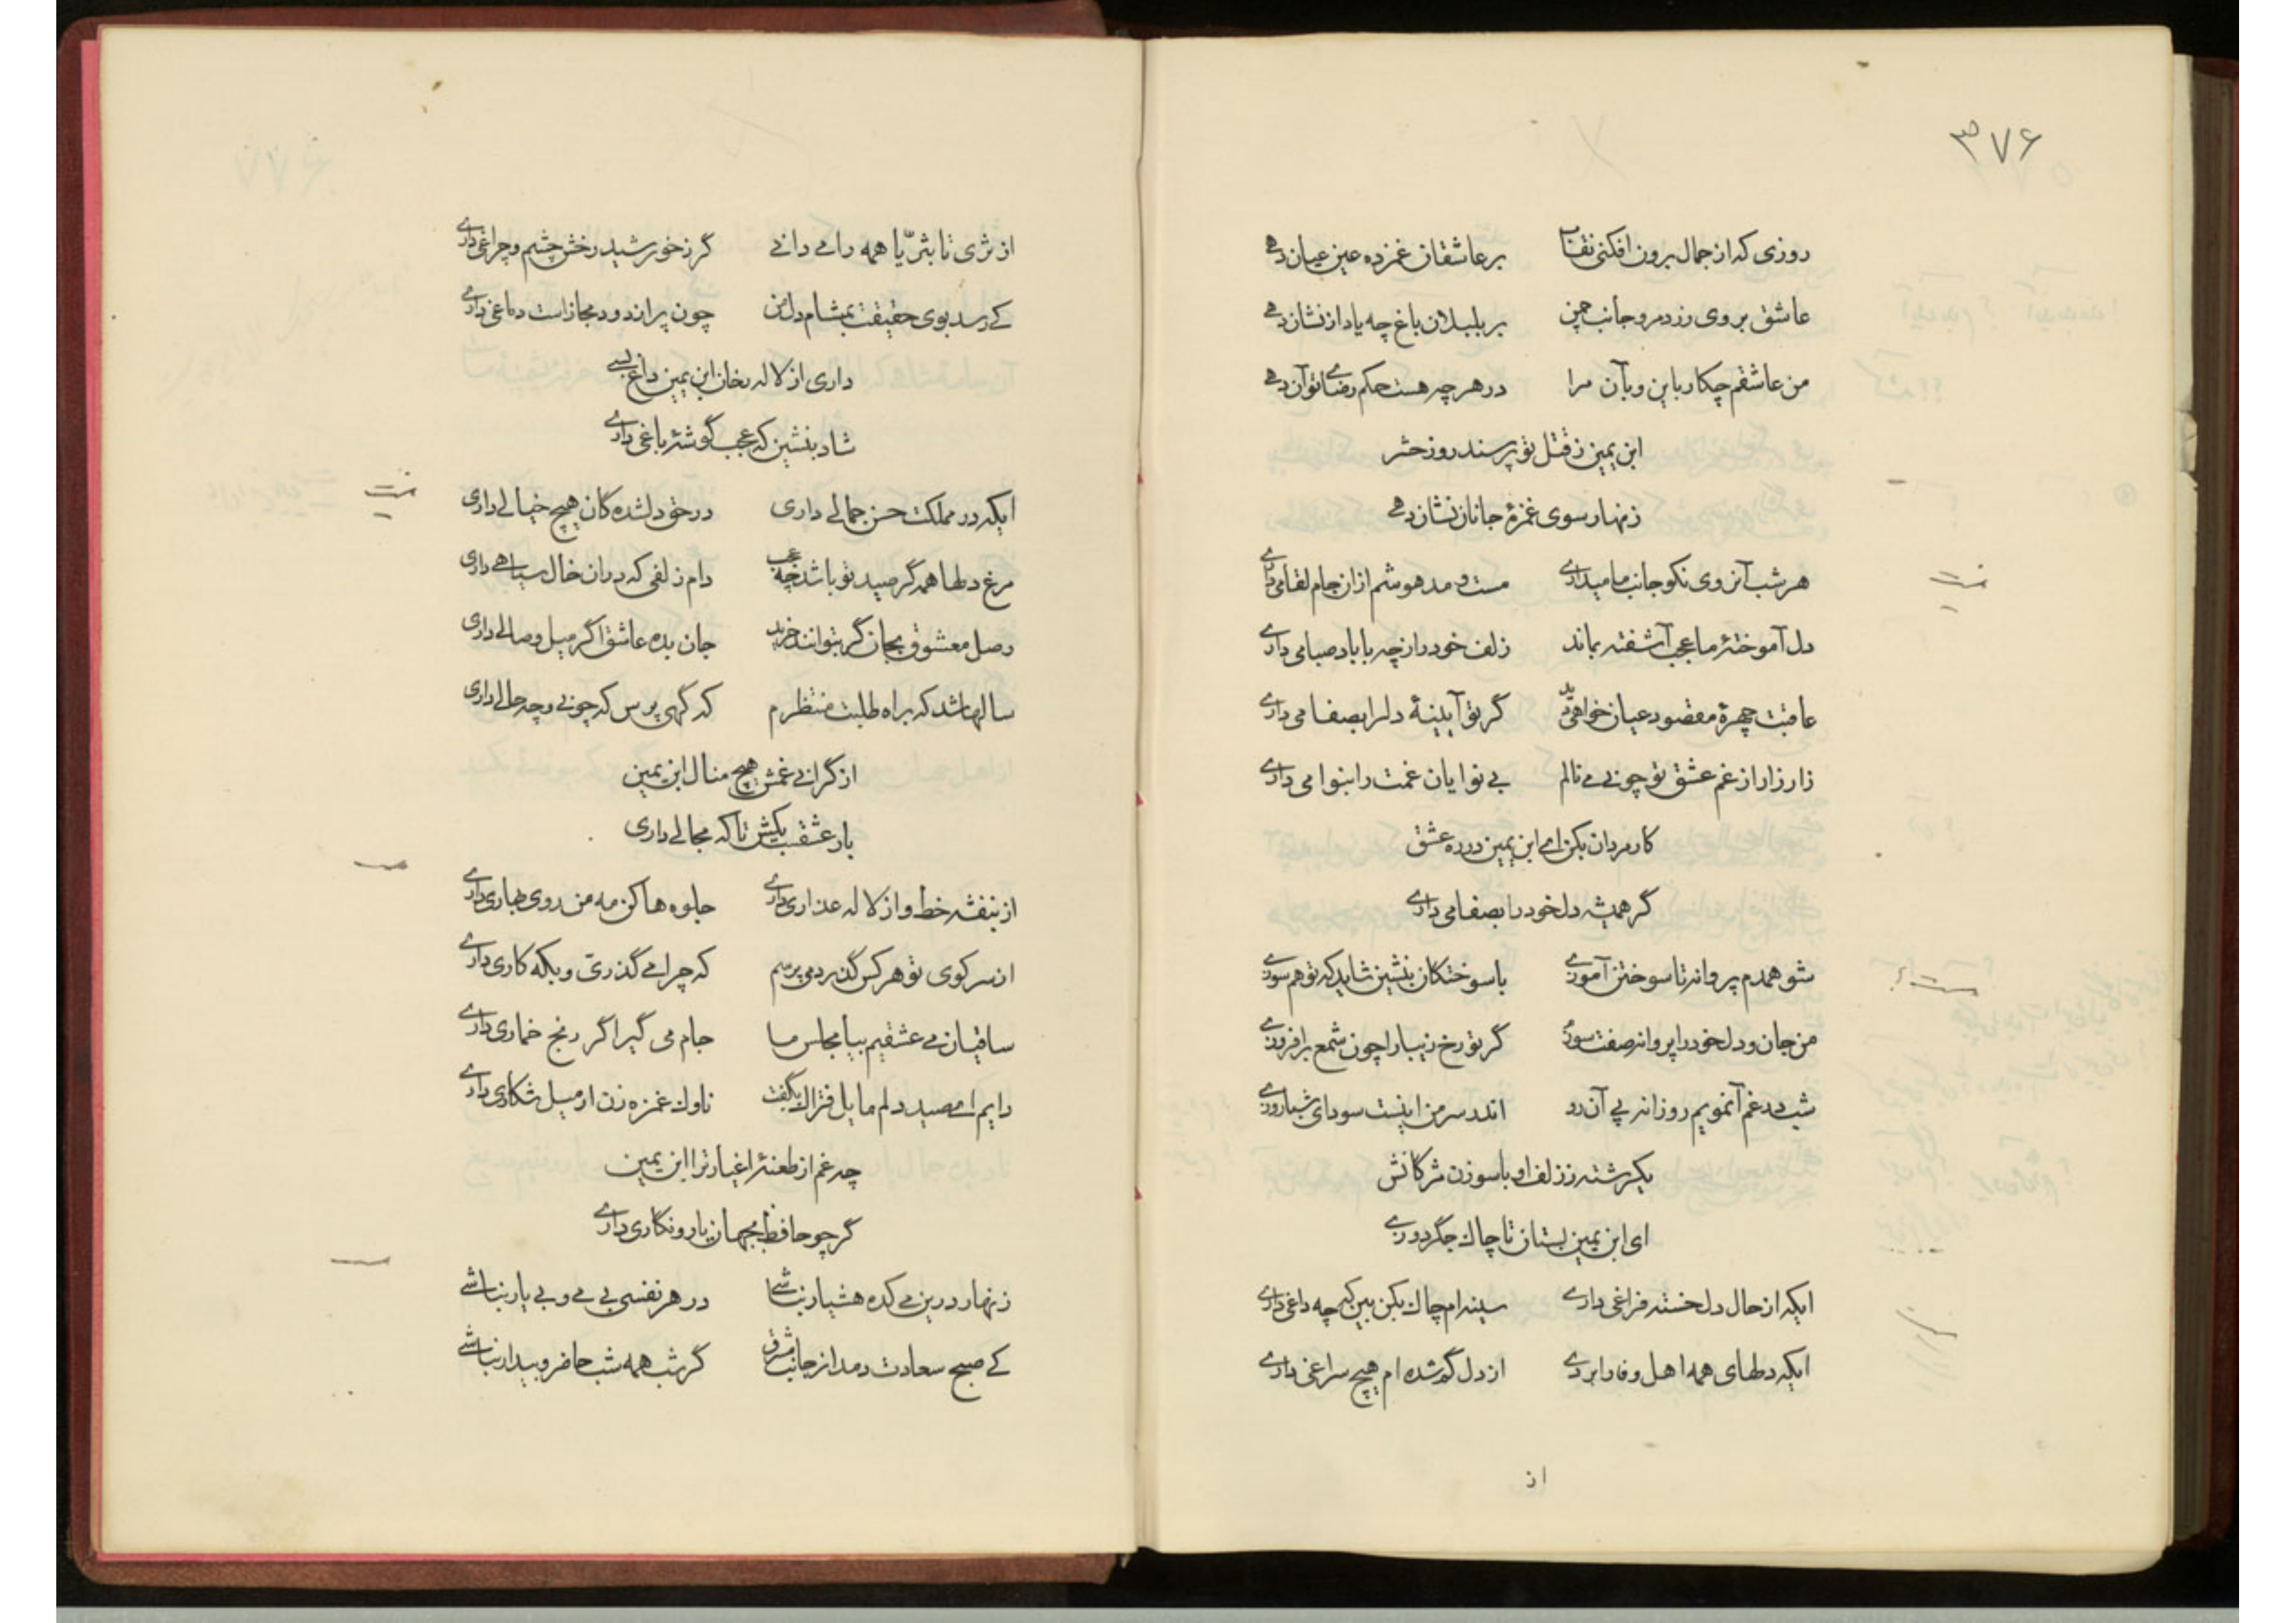 ۳۷۶
روزی که از جمال برون افکنی نقاب بر عاشقان غمزده عین عیان دهی
عاشق بروی زرد مرو جانب چمن بر بلبلان باغ چه یاد از نشان دهی
من عاشقم چکار باین و بآن مرا در هر چه هست حکم رضای تو آن دهی
ابن یمین ز قتل تو پرسند روز حشر
زنهار سوی غمزهٔ جانان نشان دهی
هر شب آنروی نکو جانب ما میداری مست و مدهوشم ازان جام لقا می داری
دل آموختهٔ ما عجب آشفته بماند زلف خود را ز چه با باد صبا می داری
عاقبت چهرهٔ مقصود عیان خواهی دید گر تو آیینهٔ دلرا بصفا می داری
زار زار از غم عشق تو چو نی می نالم بی نوایان غمت را بنوا می داری
کار مردان بکن ای ابن یمین در ره عشق
گر همیشه دل خود را بصفا می داری
شو همدم پروانه تا سوختن آموزی با سوختگان بنشین شاید که تو هم سوزی
من جان و دل خود را پروانه صفت سوزم گر تو رخ زیبا را چون شمع برافروزی
شب در غم آنمویم روزانه پی آن رو اندر سر من اینست سودای شباروزی
یکرشته ز زلف او با سوزن مژگانش
ای ابن یمین بستان تا چاک جگر دوزی
ایکه از حال دل خسته فراغی داری سینه ام چاک بکن بین که چه داغی داری
ایکه دلهای همه اهل وفا را بردی از دل گمشده ام هیچ سراغی داری
از
از ثری تا بثریّا همه را می دانی گر ز خورشید رخش چشم و چراغی داری
کی رسد بوی حقیقت بمشام دل من چون پراندود مجازاست دماغی داری
داری از لاله رخان ابن یمین داغ بسی
شاد بنشین که عجب گوشهٔ باغی داری
ایکه در مملکت حسن جمالی داری در حق دلشده کان هیچ خیالی داری
مرغ دلها همه گر صید تو باشد چه عجب دام زلفی که دران خال سیاهی داری
وصل معشوق بجان گر بتوانند خرید جان بده عاشق اگر میل وصالی داری
سالها شد که براه طلبت منتظرم که گهی پرس که چونی و چه حالی داری
از گرانی غمش هیچ منال ابن یمین
بار عشقت بکش تا که مجالی داری
از بنفشه خط و از لاله عذاری داری جلوه ها کن مه من روی بهاری داری
از سر کوی تو هر کس گذرد می پرسم که چرا می گذری و بکه کاری داری
ساقیان می عشقیم بیا مجلس ما جام می گیر اگر رنج خماری داری
دایم ای صید دلم مایل فتراک بگفت ناوک غمزه زن ار میل شکاری داری
چه غم از طعنهٔ اغیار ترا ابن یمین
گر چو حافظ بجهان یار و نگاری داری
زنهار درین می کده هشیار نباشی در هر نفسی بی می و بی یار نباشی
کی صبح سعادت دمد از جانب مشرق گر شب همه شب حاضر و بیدار نباشی